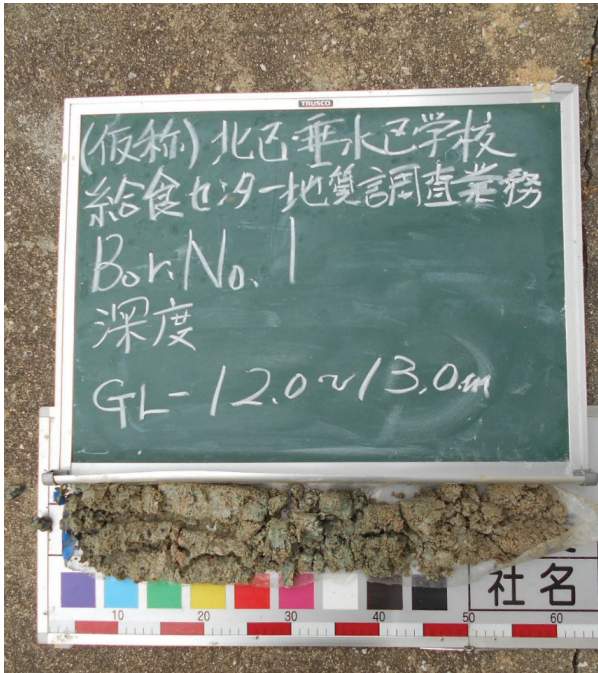 TRUSCO
(仮称) 北区・垂水区学校
給食センター地質調査業務
Bor.No.1
深度
GL-12.0~13.0m
社名
10 20 30 40 50 60